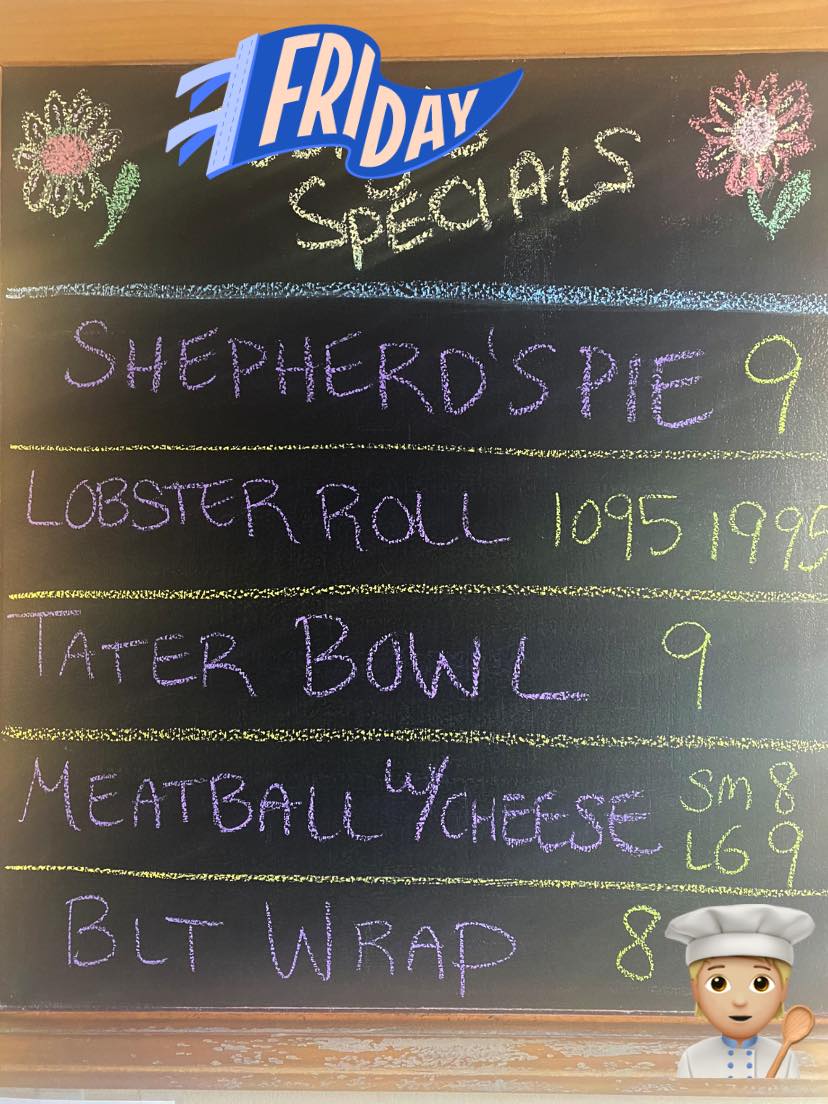 FRIDAY
SPECIALS
SHEPHERD'S PIE 9
LOBSTER ROLL 1095 1995
TATER BOWL 9
MEATBALL W/CHEESE SM 8
LG 9
BLT WRAP 8